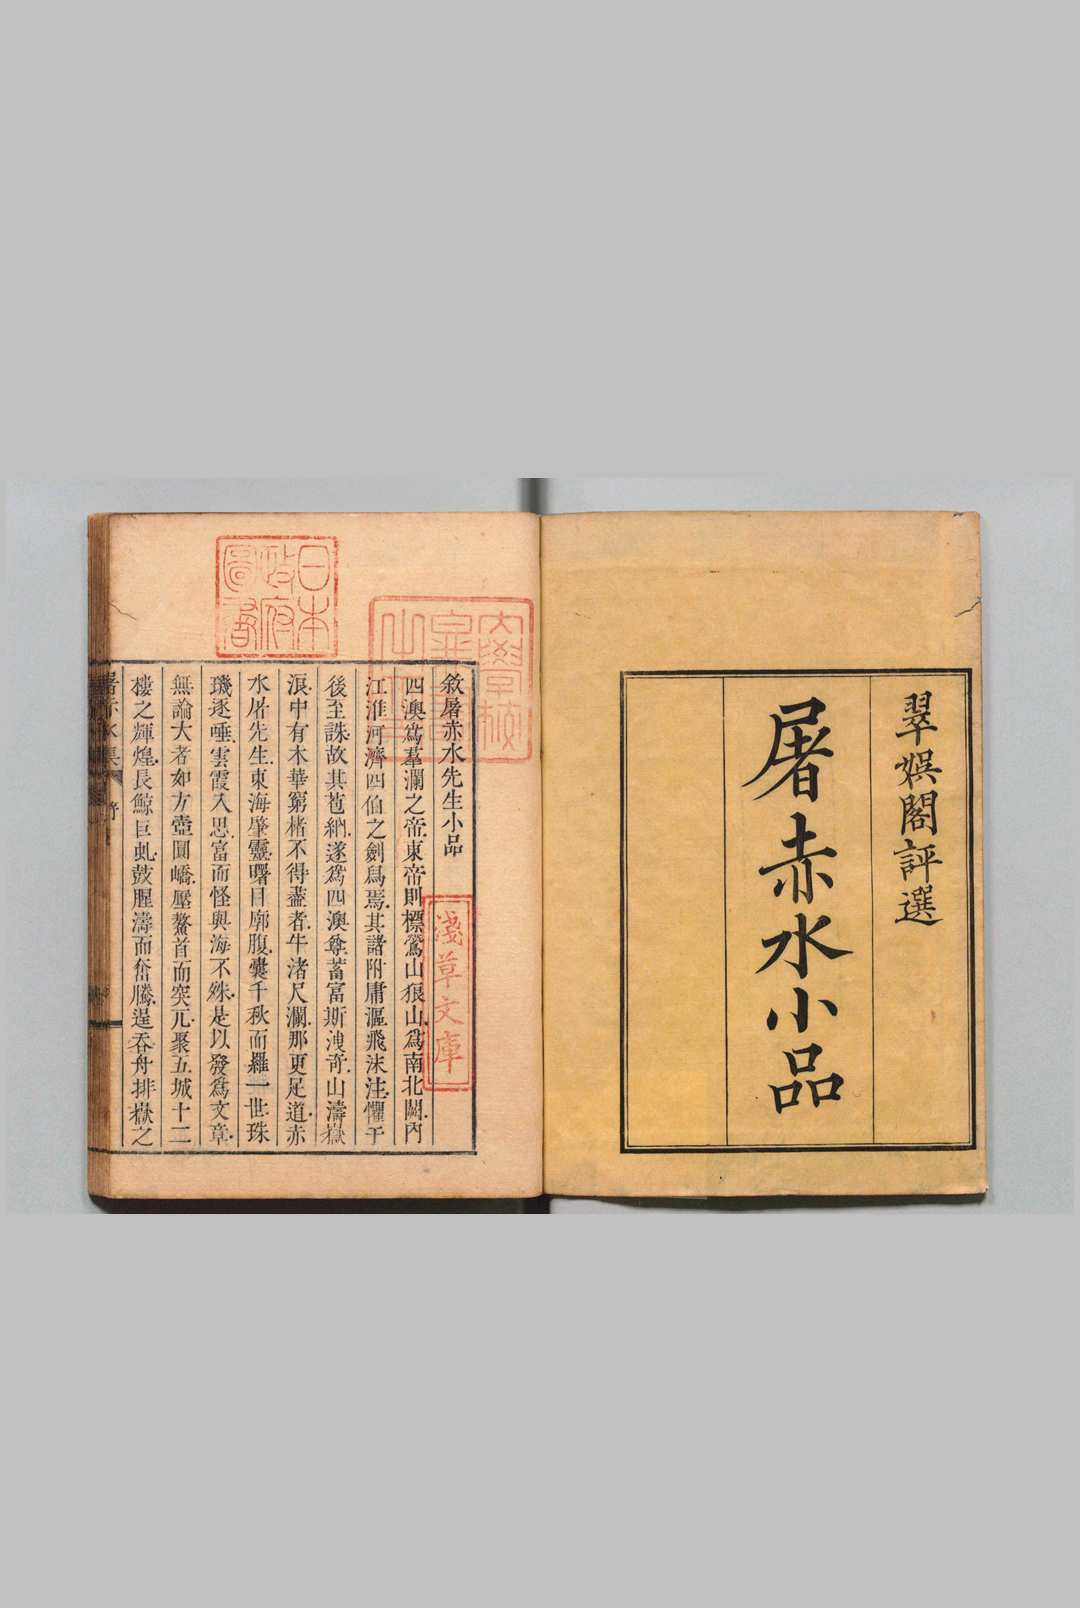 翠娯閣評選
屠赤水小品
敘屠赤水先生小品
四澳為羣瀾之帝東帝則標鶯山狼山為南北闕內
江淮河濟四伯之劍舄焉其諸附庸漚飛沫注懼于
後至誅故其苞納遂為四澳尊蓄富斯洩奇山濤嶽
浪中有木華窮楮不得盡者牛渚尺瀾那更足道赤
水屠先生東海肇靈曙目廓腹囊千秋而羅一世珠
璣逐唾雲霞入思富而怪與海不殊是以發為文章
無論大者如方壺圓嶠壓鰲首而突兀聚五城十二
樓之輝煌長鯨巨虬鼓腥濤而奮騰逞吞舟排嶽之
屠赤水集
序
日本政府圖書
淺草文庫